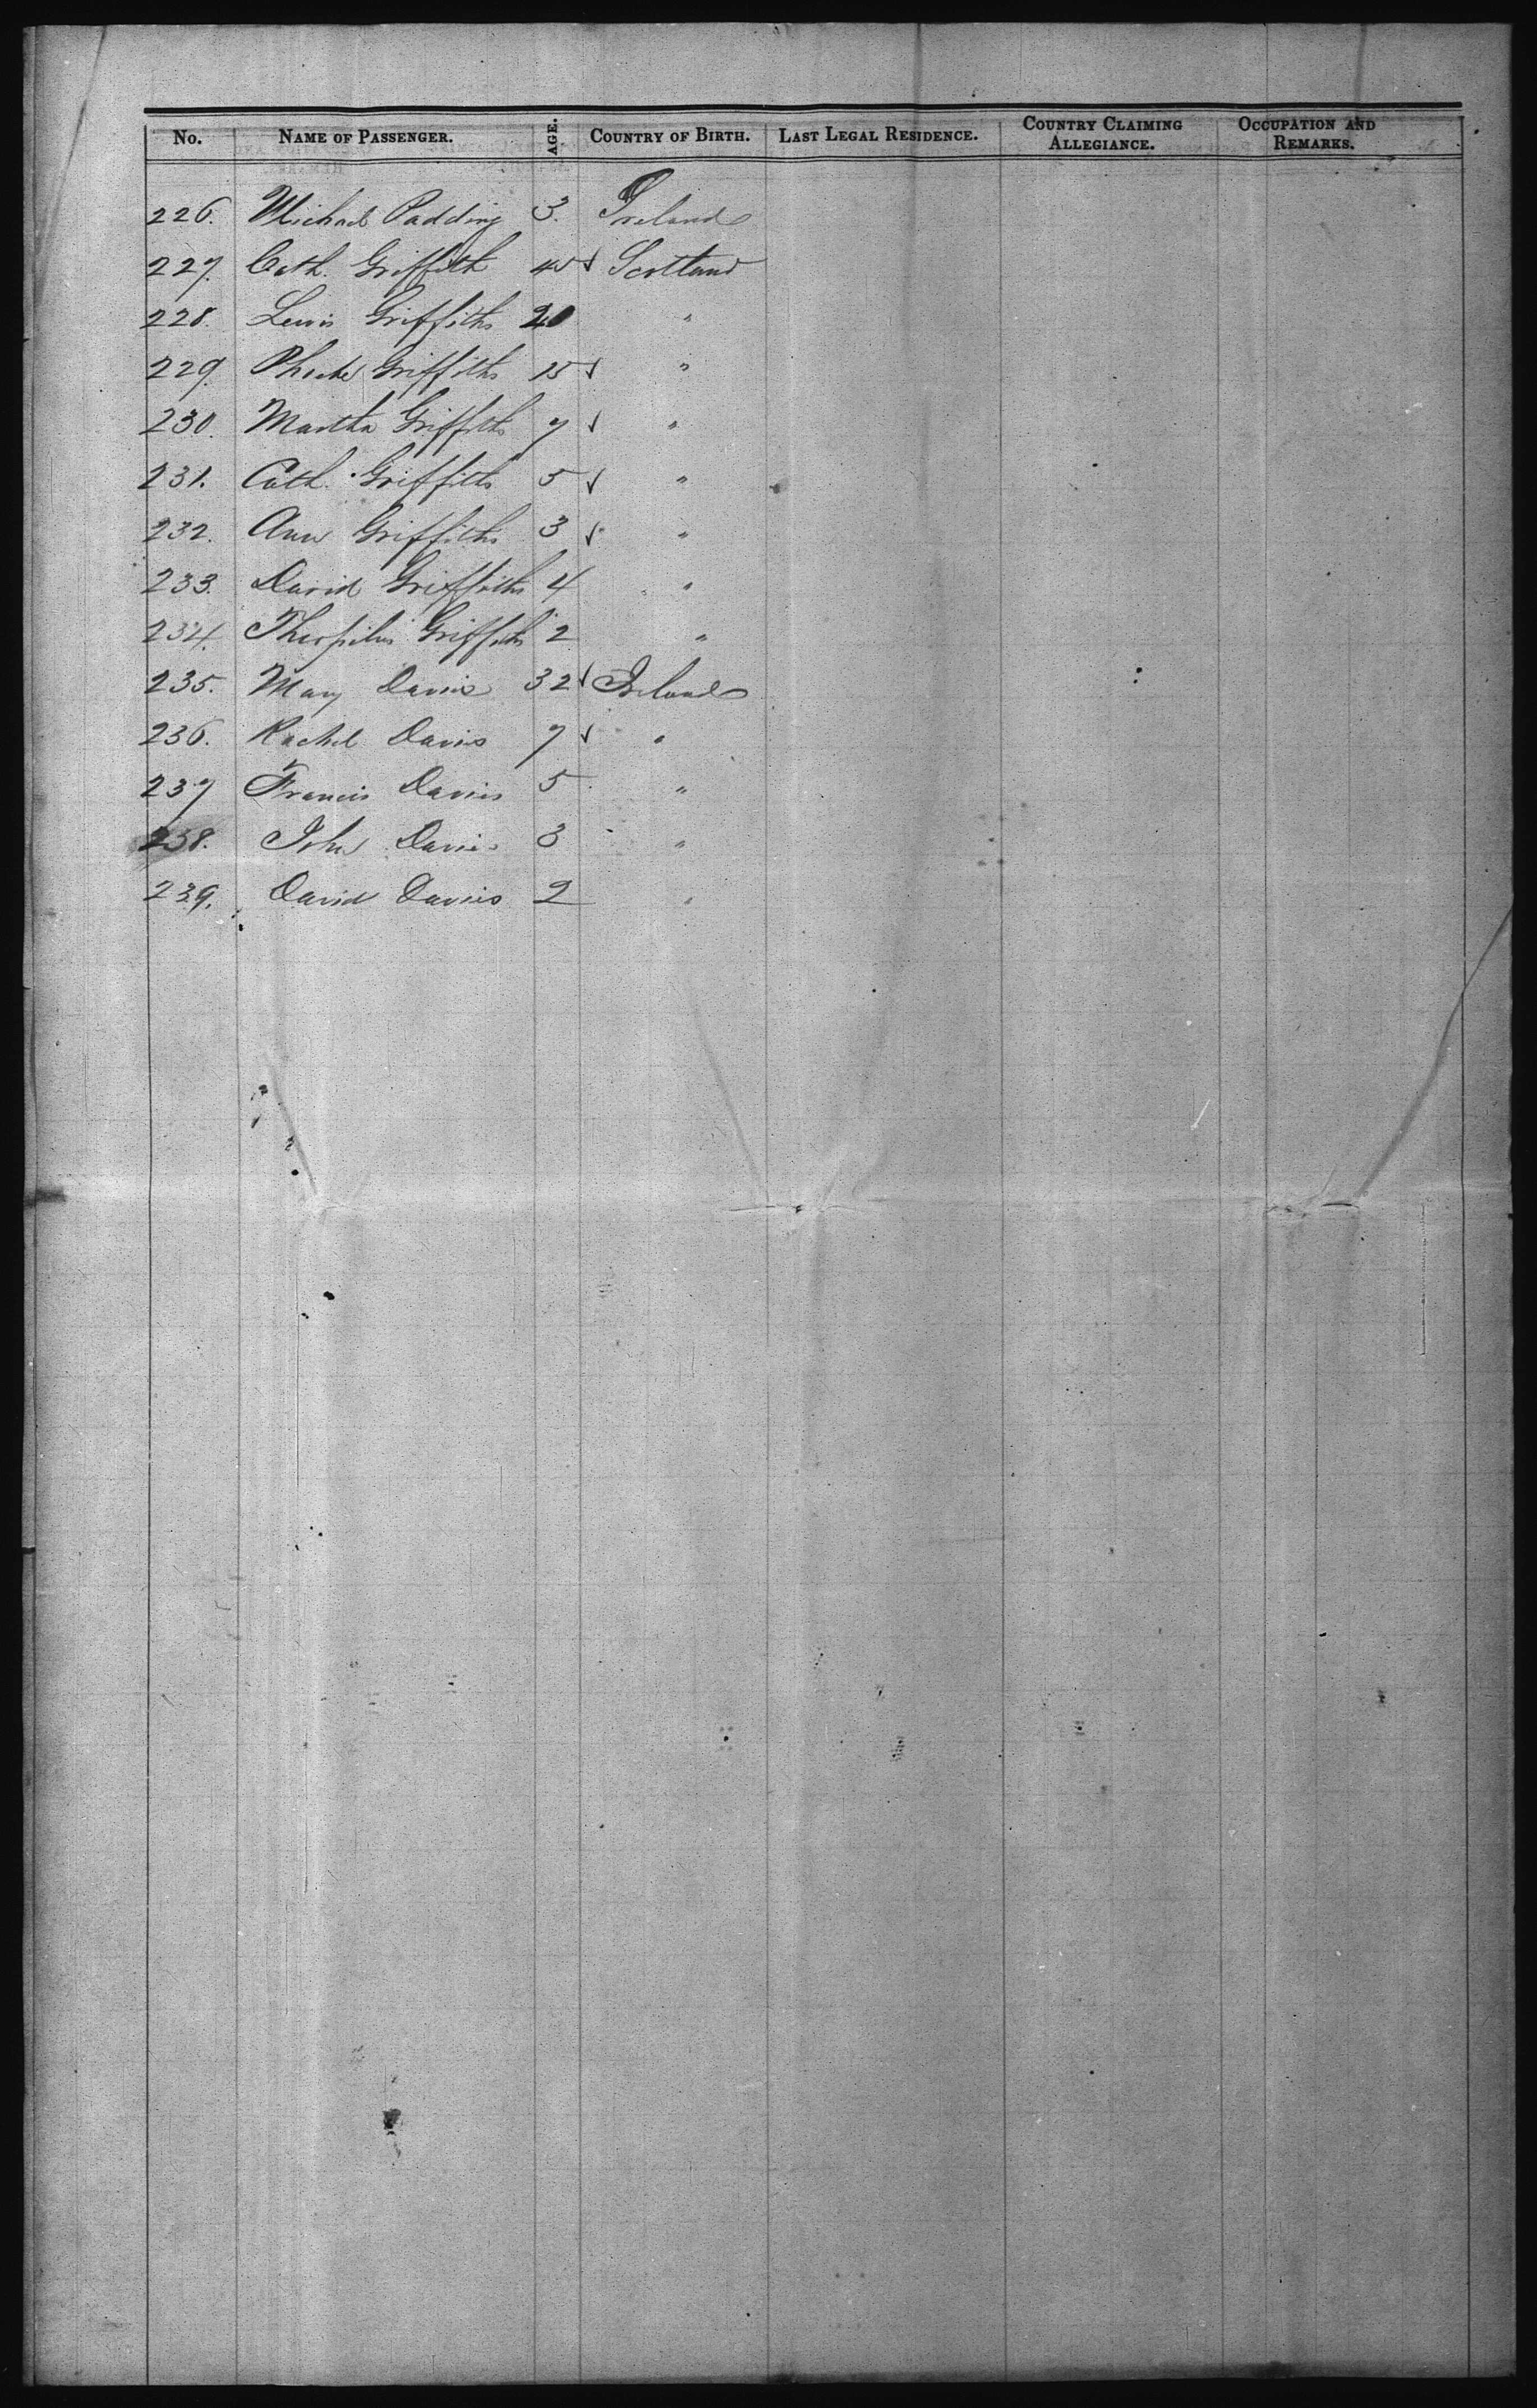 No. NAME OF PASSENGER. AGE. COUNTRY OF BIRTH. LAST LEGAL RESIDENCE. COUNTRY CLAIMING ALLEGIANCE. OCCUPATION AND REMARKS.
226. Michael Padding 3. Ireland
227. Cath. Griffith ✓ Scotland
228. Lewis Griffiths 20 "
229. Phoebe Griffiths 15 ✓ "
230. Martha Griffiths 7 ✓ "
231. Cath. Griffiths 5 ✓ "
232. Ann Griffiths 3 ✓ "
233. David Griffiths 4 "
234. Theophilus Griffiths 2 "
235. Mary Davis 32 ✓ Ireland
236. Rachel Davis 7 ✓ "
237 Francis Davies 5 "
238. John Davies 3 "
239. David Davies 2 "